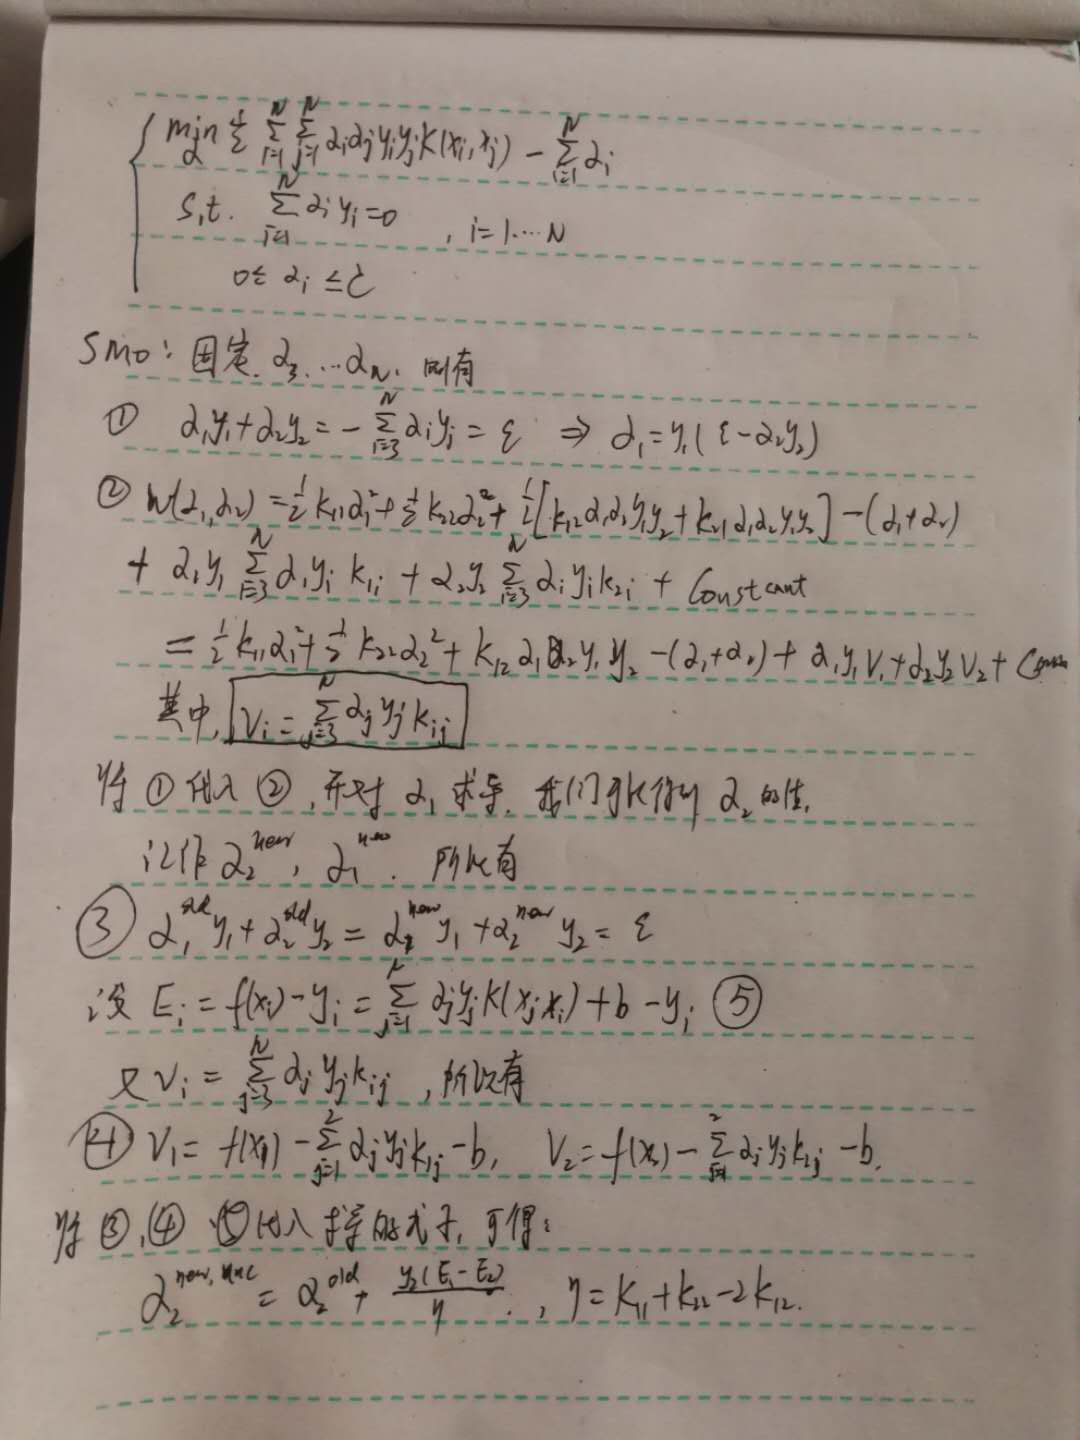 min_α ½ Σ_{i=1}^N Σ_{j=1}^N αiαjyiyjK(xi,xj) − Σ_{i=1}^N αi
s.t. Σ_{i=1}^N αiyi=0 , i=1····N
0≤ αi ≤C
SMO: 固定. α3...αN. 则有
① α1y1+α2y2 = − Σ_{i=3}^N αiyi = ε ⇒ α1=y1(ε−α2y2)
② W(α1,α2) = ½K11α1²+½K22α2²+½[K12α1α2y1y2+K21α1α2y1y2]−(α1+α2)
+ α1y1 Σ_{i=3}^N αiyi K1i + α2y2 Σ_{i=3}^N αiyiK2i + Constant
= ½K11α1²+½K22α2²+K12α1α2y1y2−(α1+α2)+α1y1V1+α2y2V2+
其中, Vi= Σ_{j=3}^N αjyjKij
将①代入②,并对α1求导. 我们可以得到α2的值.
记作α2^new, α1^new. 所以有
③ α1^old y1+α2^old y2 = α2^new y1+α2^new y2 = ε
设 Ei = f(xi)−yi = Σ_{j=1}^N αjyjK(xj,xi)+b−yi ⑤
又 Vi = Σ_{j=3}^N αjyjKij , 所以有
④ V1= f(x1) − Σ_{j=1}^2 αjyjK1j −b, V2=f(x2)− Σ_{j=1}^2 αjyjK2j −b.
将③,④,⑤代入求导的式子,可得:
α2^{new,unc} = α2^old + y2(E1−E2)/η , η=K11+K22−2K12.